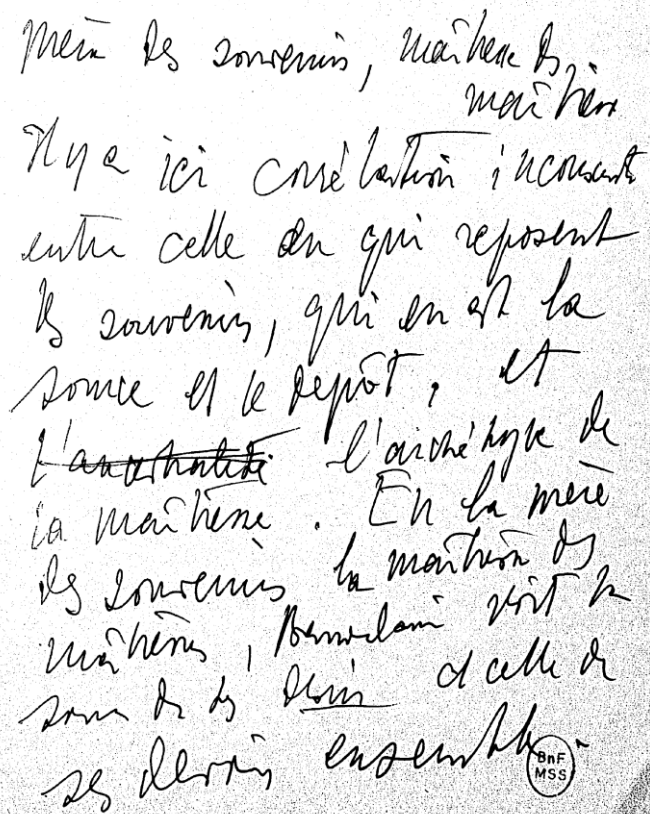 mère des souvenirs, maîtresse des
maîtresses
Il y a ici corrélation inconsciente
entre celle en qui reposent
les souvenirs, qui en est la
source et le dépôt, et
l'archétype de
la maîtresse. En la mère
des souvenirs la maîtresse des
maîtresses, Baudelaire voit la
source de ses désirs et celle de
ses devoirs ensemble.
BnF
MSS